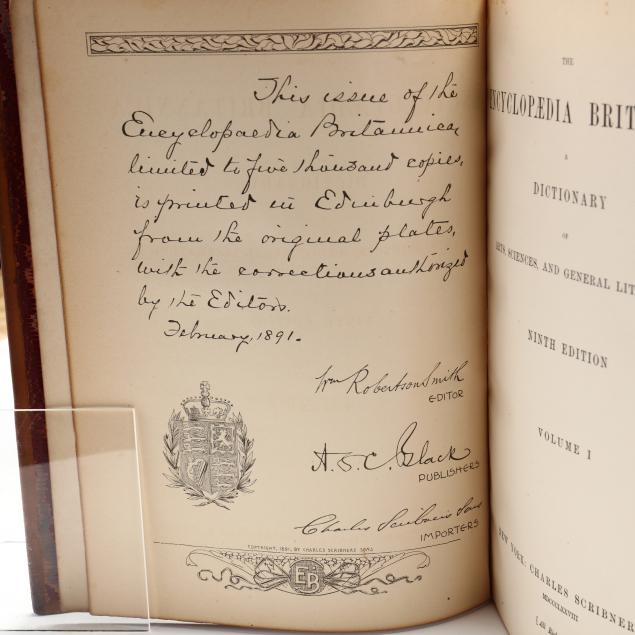 This issue of the
Encyclopaedia Britannica,
limited to five thousand copies,
is printed in Edinburgh
from the original plates,
with the corrections authorized
by the Editors.
February, 1891.
Wm Robertson Smith
EDITOR
A. & C. Black
PUBLISHERS
Charles Scribner's Sons
IMPORTERS
COPYRIGHT, 1891, BY CHARLES SCRIBNER'S SONS
EB
THE
ENCYCLOPÆDIA BRIT
A
DICTIONARY
OF
ARTS, SCIENCES, AND GENERAL LIT
NINTH EDITION
VOLUME I
NEW YORK: CHARLES SCRIBNER
MDCCCLXXVIII
[All